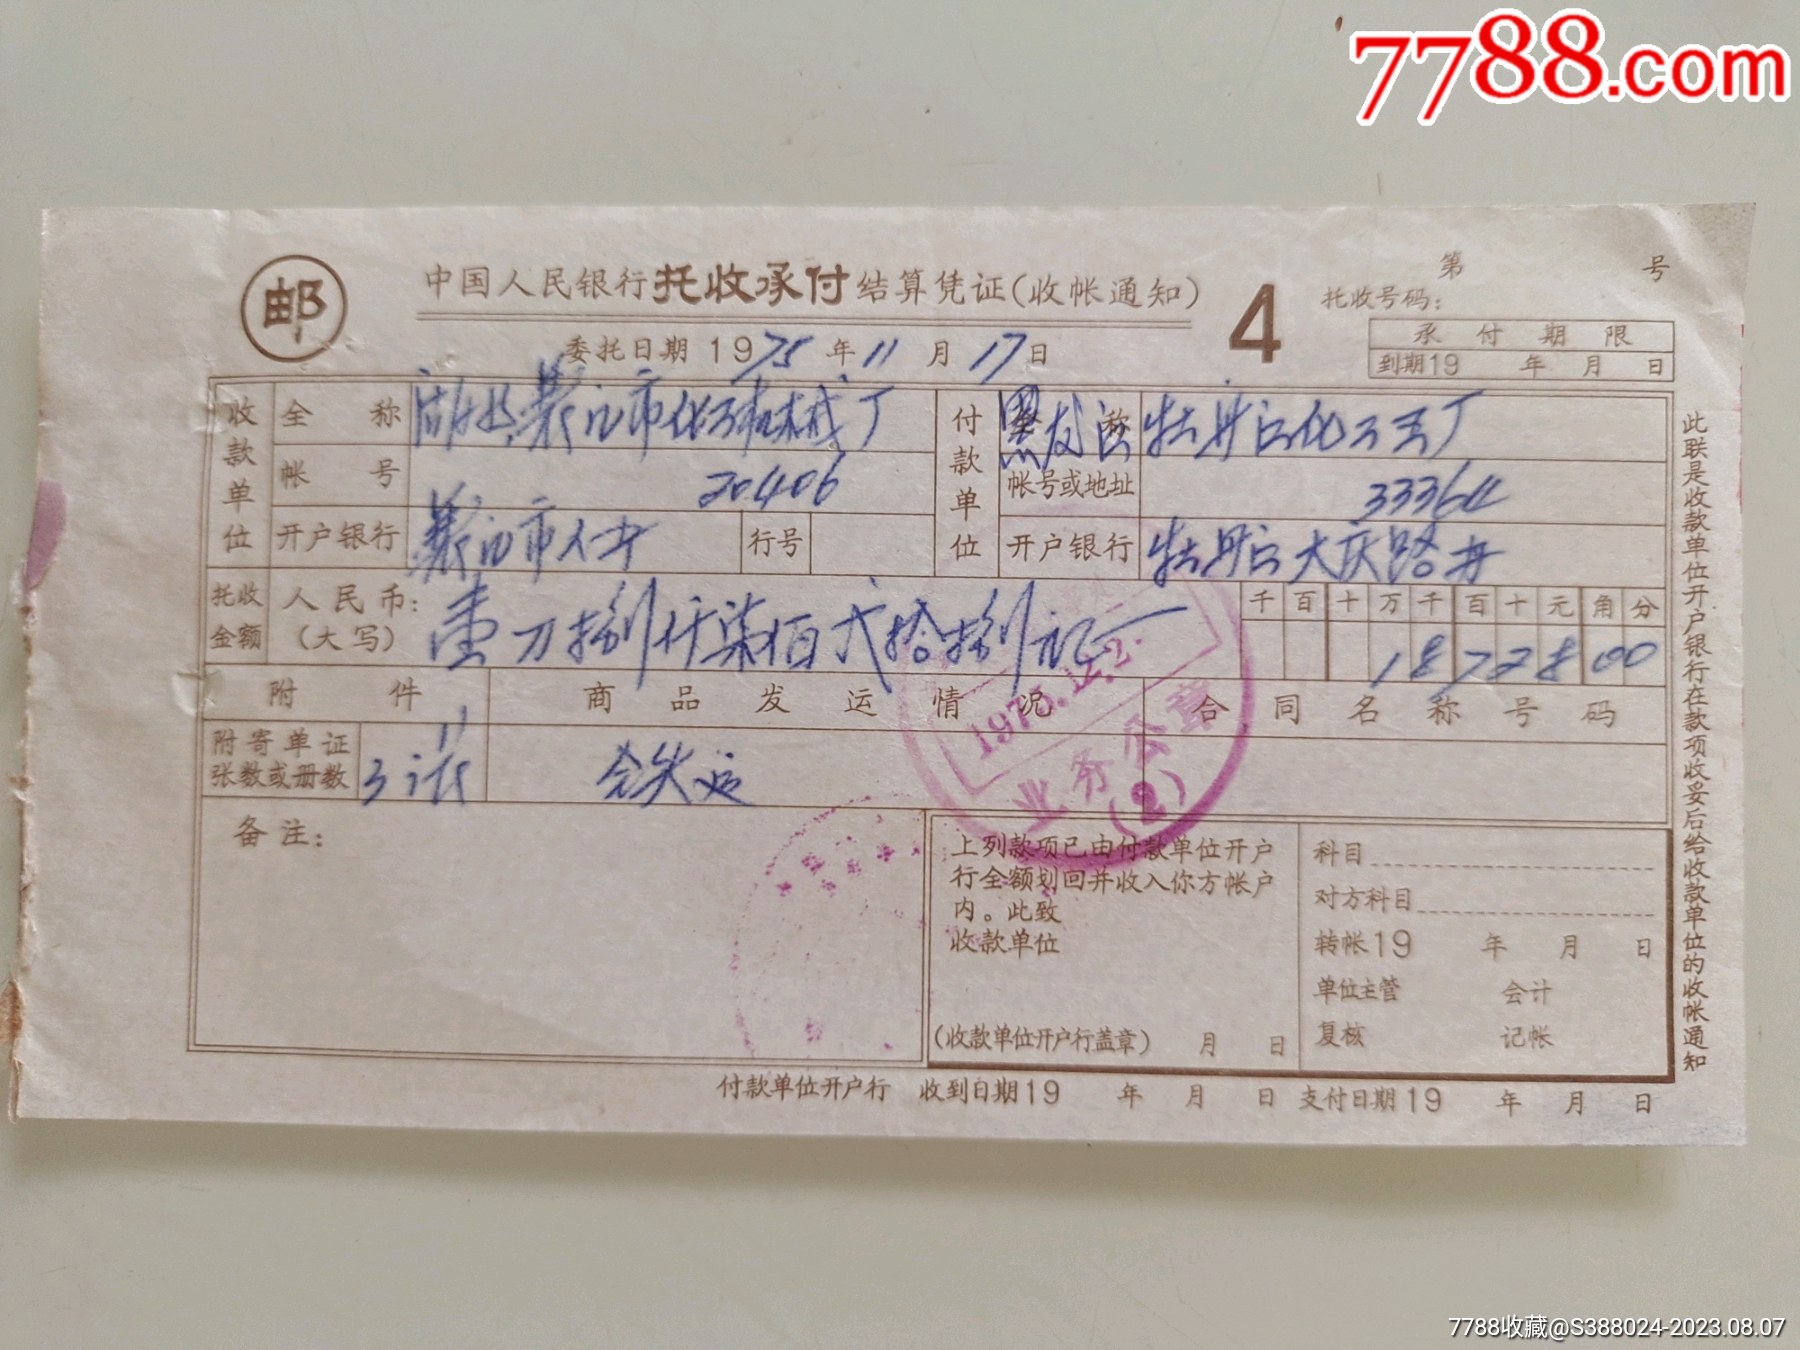 7788.com
邮
中国人民银行托收承付结算凭证(收帐通知)
4
第 号
托收号码:
承付期限
到期19 年 月 日
委托日期 1975 年 11 月 17 日
收款单位
全称
市化工机械厂
帐号
20406
开户银行
行号
付款单位
全称
黑龙江牡丹江化工五厂
帐号或地址
33364
开户银行
牡丹江大庆路办
托收金额
人民币:
(大写)
壹万捌仟柒佰弍拾捌元正
千百十万千百十元角分
1872800
附件
商品发运情况
合同名称号码
附寄单证
张数或册数
11
3
备注:
1975.12.2.
业务公章
(2)
上列款项已由付款单位开户
行全额划回并收入你方帐户
内。此致
收款单位
(收款单位开户行盖章) 月 日
科目
对方科目
转帐19 年 月 日
单位主管 会计
复核 记帐
付款单位开户行 收到日期19 年 月 日 支付日期19 年 月 日
此联是收款单位开户银行在款项收妥后给收款单位的收帐通知
7788收藏@S388024-2023.08.07